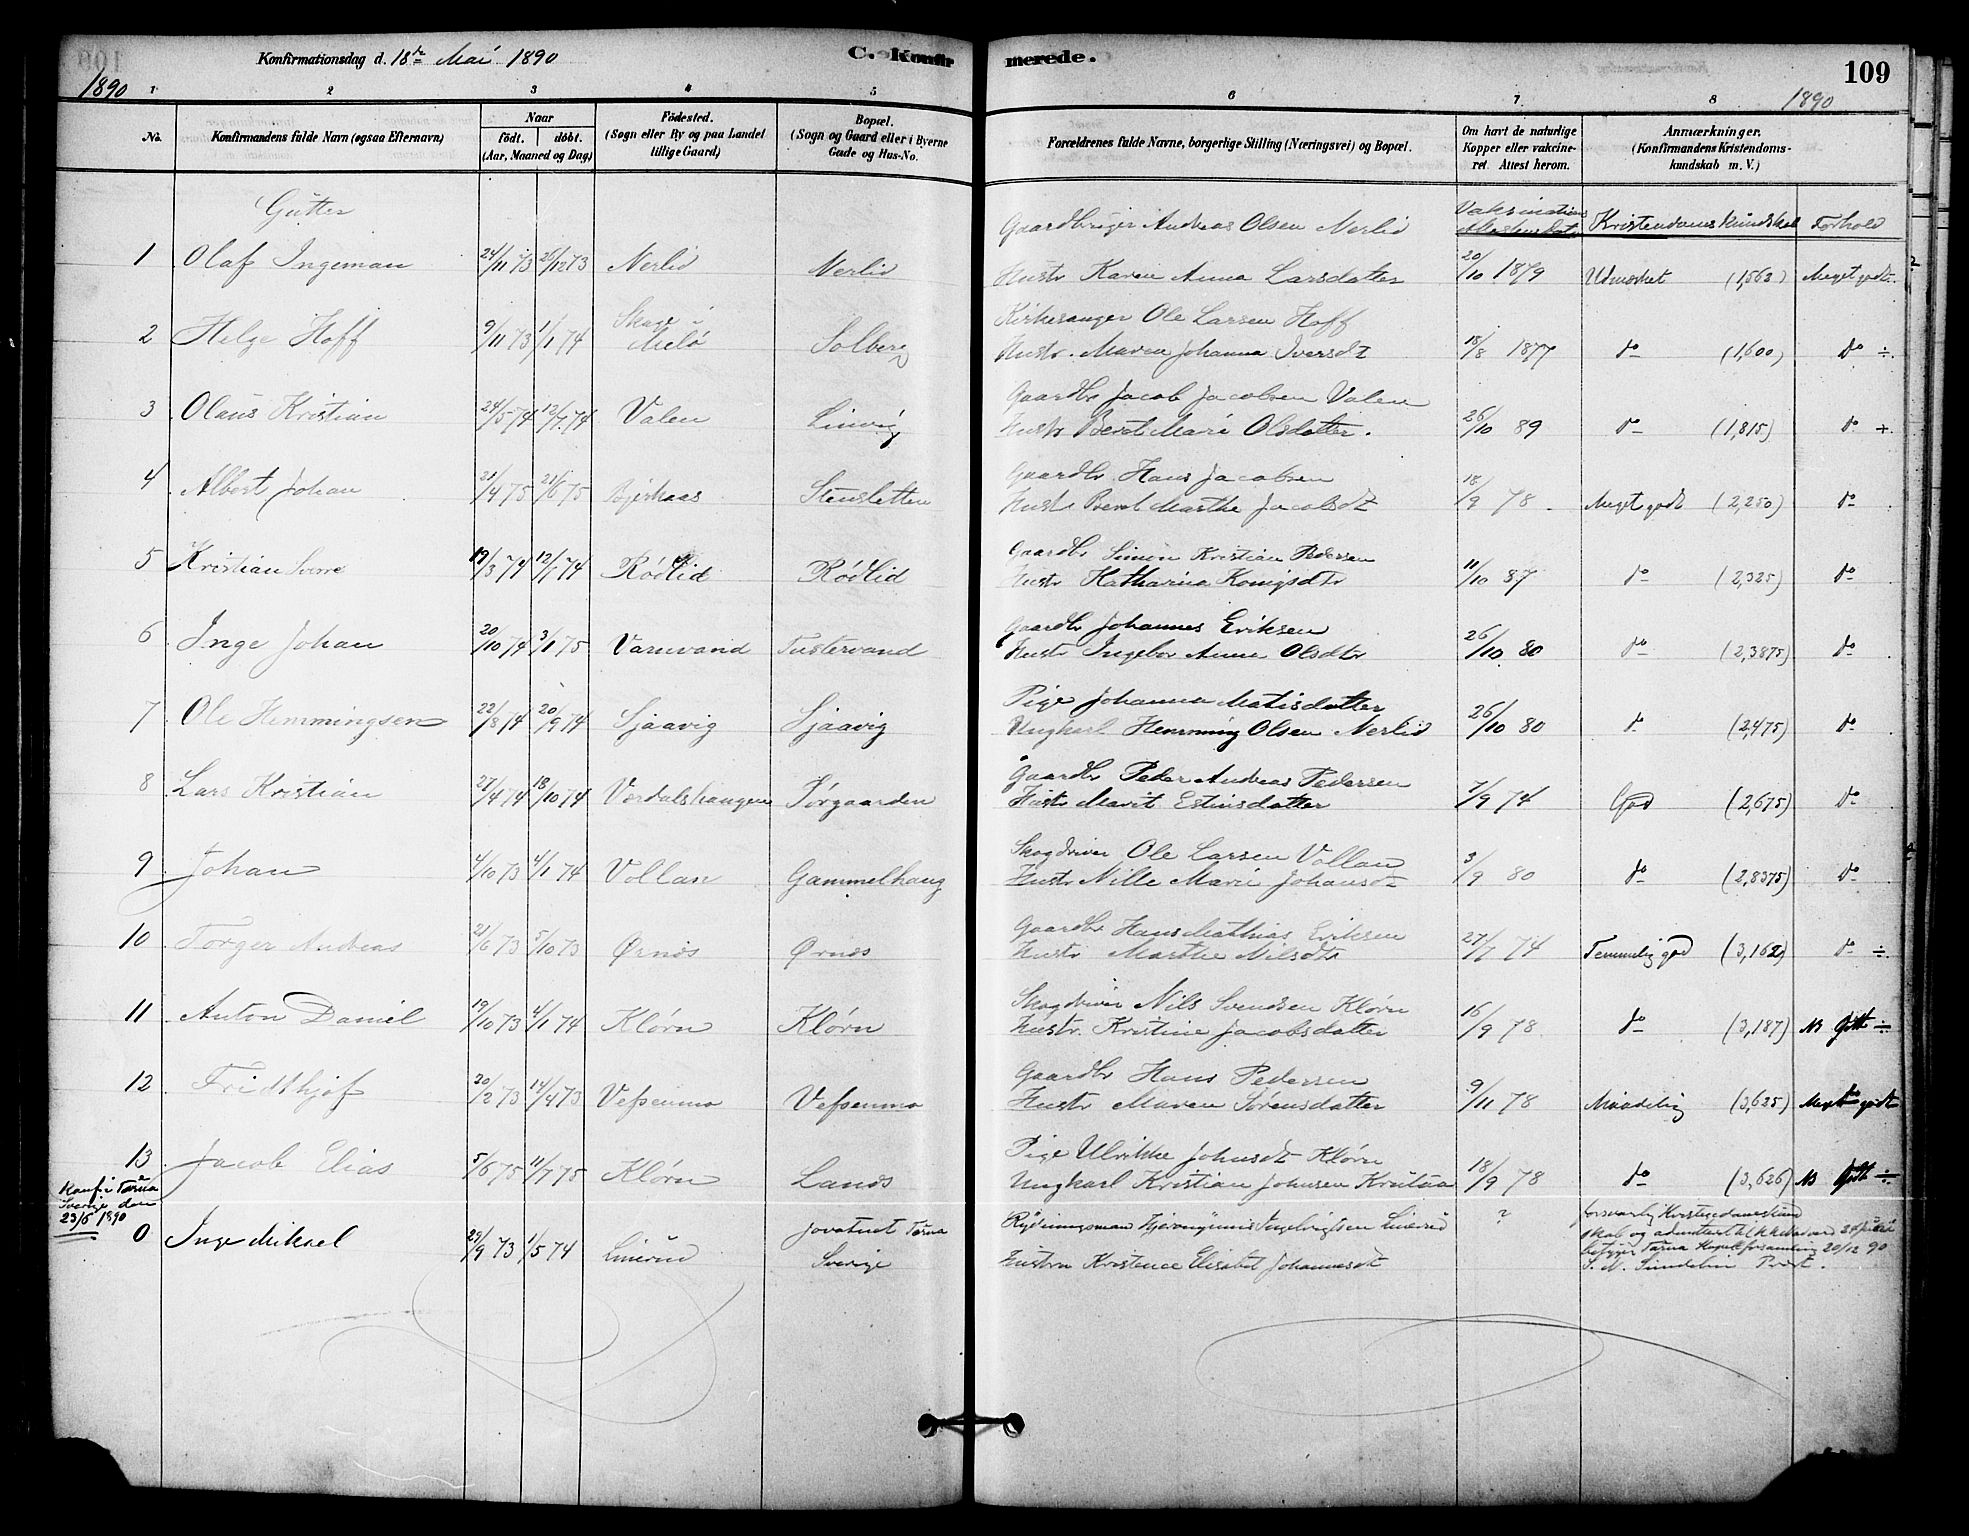 Konfirmationsdag d. 18de Mai 1890
C. Konfirmerede.
109
1890
1890
1 2 3 4 5 6 7 8
No.
Konfirmandens fulde Navn (ogsaa Efternavn)
Naar
födt. döbt.
(Aar, Maaned og Dag)
Födested.
(Sogn eller By og paa Landet
tillige Gaard)
Bopæl.
(Sogn og Gaard eller i Byerne
Gade og Hus-No.
Forældrenes fulde Navne, borgerlige Stilling (Næringsvei) og Bopæl.
Om havt de naturlige
Kopper eller vakcine-
ret. Attest herom.
Anmærkninger.
(Konfirmandens Kristendoms-
kundskab m. V.)
Gutter
Vaksinations
Kristendomskundskab Forhold
Gaardbruger Andreas Olsen Nerlid
1 Olaf Ingeman 24/11 73 26/12 73 Nerlid Nerlid Hustr Karen Anna Larsdatter 20/10 1879 Udmerket (1,563) Meget godt
Kirkesanger Ole Larsen Hoff
2 Helge Hoff 9/11 73 1/1 74 Skaue i Melö Solberg Hustr. Maren Johanna Iversdt 18/8 1877 do (1,600) do ÷
Gaardbr Jacob Jacobsen Valen
3 Olaus Kristian 24/5 74 12/7 74 Valen Linvig Hustr Beret Marie Olsdatter. 26/10 89 do (1,815) do +
Gaardbr. Hans Jacobsen
4 Albert Johan 21/4 75 21/6 75 Bjerkaas Stensletten Hustr Beret Marthe Jacobsdt 18/9 78 Meget godt (2,250) do
Gaardbr Simon Kristian Pedersen
5 Kristian Sverre 19/3 74 12/7 74 Rödlid Rödlid Hustr Katharina Konigsdtr 11/10 87 do (2,325) do
Gaardbr Johannes Eriksen
6 Inge Johan 20/10 74 3/1 75 Varnvand Tustervand Hustr Ingebor Anna Olsdtr 26/10 80 do (2,3875) do
Pige Johanna Matisdatter
7 Ole Hemmingsen 22/8 74 20/9 74 Sjaavig Sjaavig Ungkarl Hemming Olsen Nerlid 26/10 80 do (2,475) do
Gaardbr Peder Andreas Pedersen
8 Lars Kristian 27/4 74 18/10 74 Værdalshaugen Pørgaarden Hustr Marit Estinsdatter 7/9 74 God (2,675) do
Skogdriver Ole Larsen Vollan
9 Johan 4/10 73 4/1 74 Vollan Gammelhaug Hustr Nille Marie Johansdt 3/9 80 do (2,8375) do
Gaardbr Hans Mathias Eriksen
10 Torger Andreas 21/6 73 5/10 73 Ørnes Ørnes Hustr Marthe Nilsdtr 27/7 74 Temmelig god (3,162) do ÷
Skogdriver Nils Svendsen Kløvn
11 Anton Daniel 19/10 73 4/1 74 Kløvn Kløvn Hustr. Kristine Jacobsdatter 16/9 78 do (3,187) NB Godt ÷
Gaardbr Hans Pedersen
12 Fridthjof 20/2 73 14/4 73 Vefsenmo Vefsenmo Hustr Maren Sørensdatter 9/11 78 Maadelig (3,625) Meget godt
Pige Ulrikke Johnsdt Kløvn
13 Jacob Elias 5/6 75 11/7 75 Kløvn Lands Ungkarl Kristian Johnsen Krutaa 18/9 78 do (3,626) NB Godt ÷
Konf i Tärna
Sverige den
23/6 1890
0 Inge Mikael 29/9 73 1/5 74 Jovatnet Tärna
Sverige
Rydningsman Ingebrigtsen
Hustru Kristence Elisabet Johannesdt
?
forsvarlig Kristendomskund
skab og
Tärna 20/12 90
S. N. Sundelin Præst.